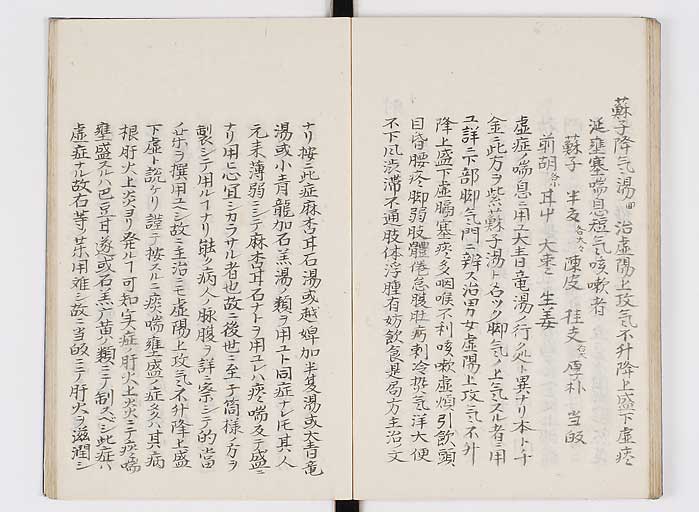 蘇子降气湯 治虚陽上攻气不升降上盛下虚痰
涎壅塞喘息短气咳嗽者
蘇子 半夏 陳皮 桂支 厚朴 当皈
前胡 甘中 大棗 生姜
虚症ノ喘息ニ用ユ大青竜湯ノ行処ト異ナリ本ト千
金ニ此方ヲ紫蘇子湯ト名ツク脚气ノ上气スル者ニ用
ユ詳ニ下部脚气門ニ辨ス治男女虚陽上攻气不升
降上盛下虚膈塞痰多咽喉不利咳嗽虚煩引飲頭
目昏腰疼脚弱肢體倦怠腹肚㽲刺冷熱气泻大便
不下风渋滞不通肢体浮腫有妨飲食是局方主治ノ文
ナリ按ニ此症麻杏甘石湯或越婢加半夏湯或大青竜
湯或小青龍加石羔湯ノ類ヲ用ユト同症ナレ𪜈其人
元来薄弱ニシテ麻杏甘石ナトヲ用ユレハ痰喘反テ盛ニ
ナリ用ニ心宜シカラサル者也故ニ後世ニ至テ筒様ノ方ヲ
製シテ用ルヿナリ能ク病人ノ脉腹ヲ詳ニ察シテ的當
ノ薬ヲ撰用ユヘシ故ニ主治ニモ虚陽上攻气不升降上盛
下虚ト説ケリ謹テ按スルニ痰喘壅盛ノ症多クハ其病
根肝火上炎ヨリ発ルヿ可知実症ノ肝火上炎ニテ痰喘
壅盛スルハ巴豆甘遂或石羔ノ類ニテ制スベシ此症ハ
虚症ナル故右等ノ薬用難シ故ニ当皈ニテ肝火ヲ滋潤シ